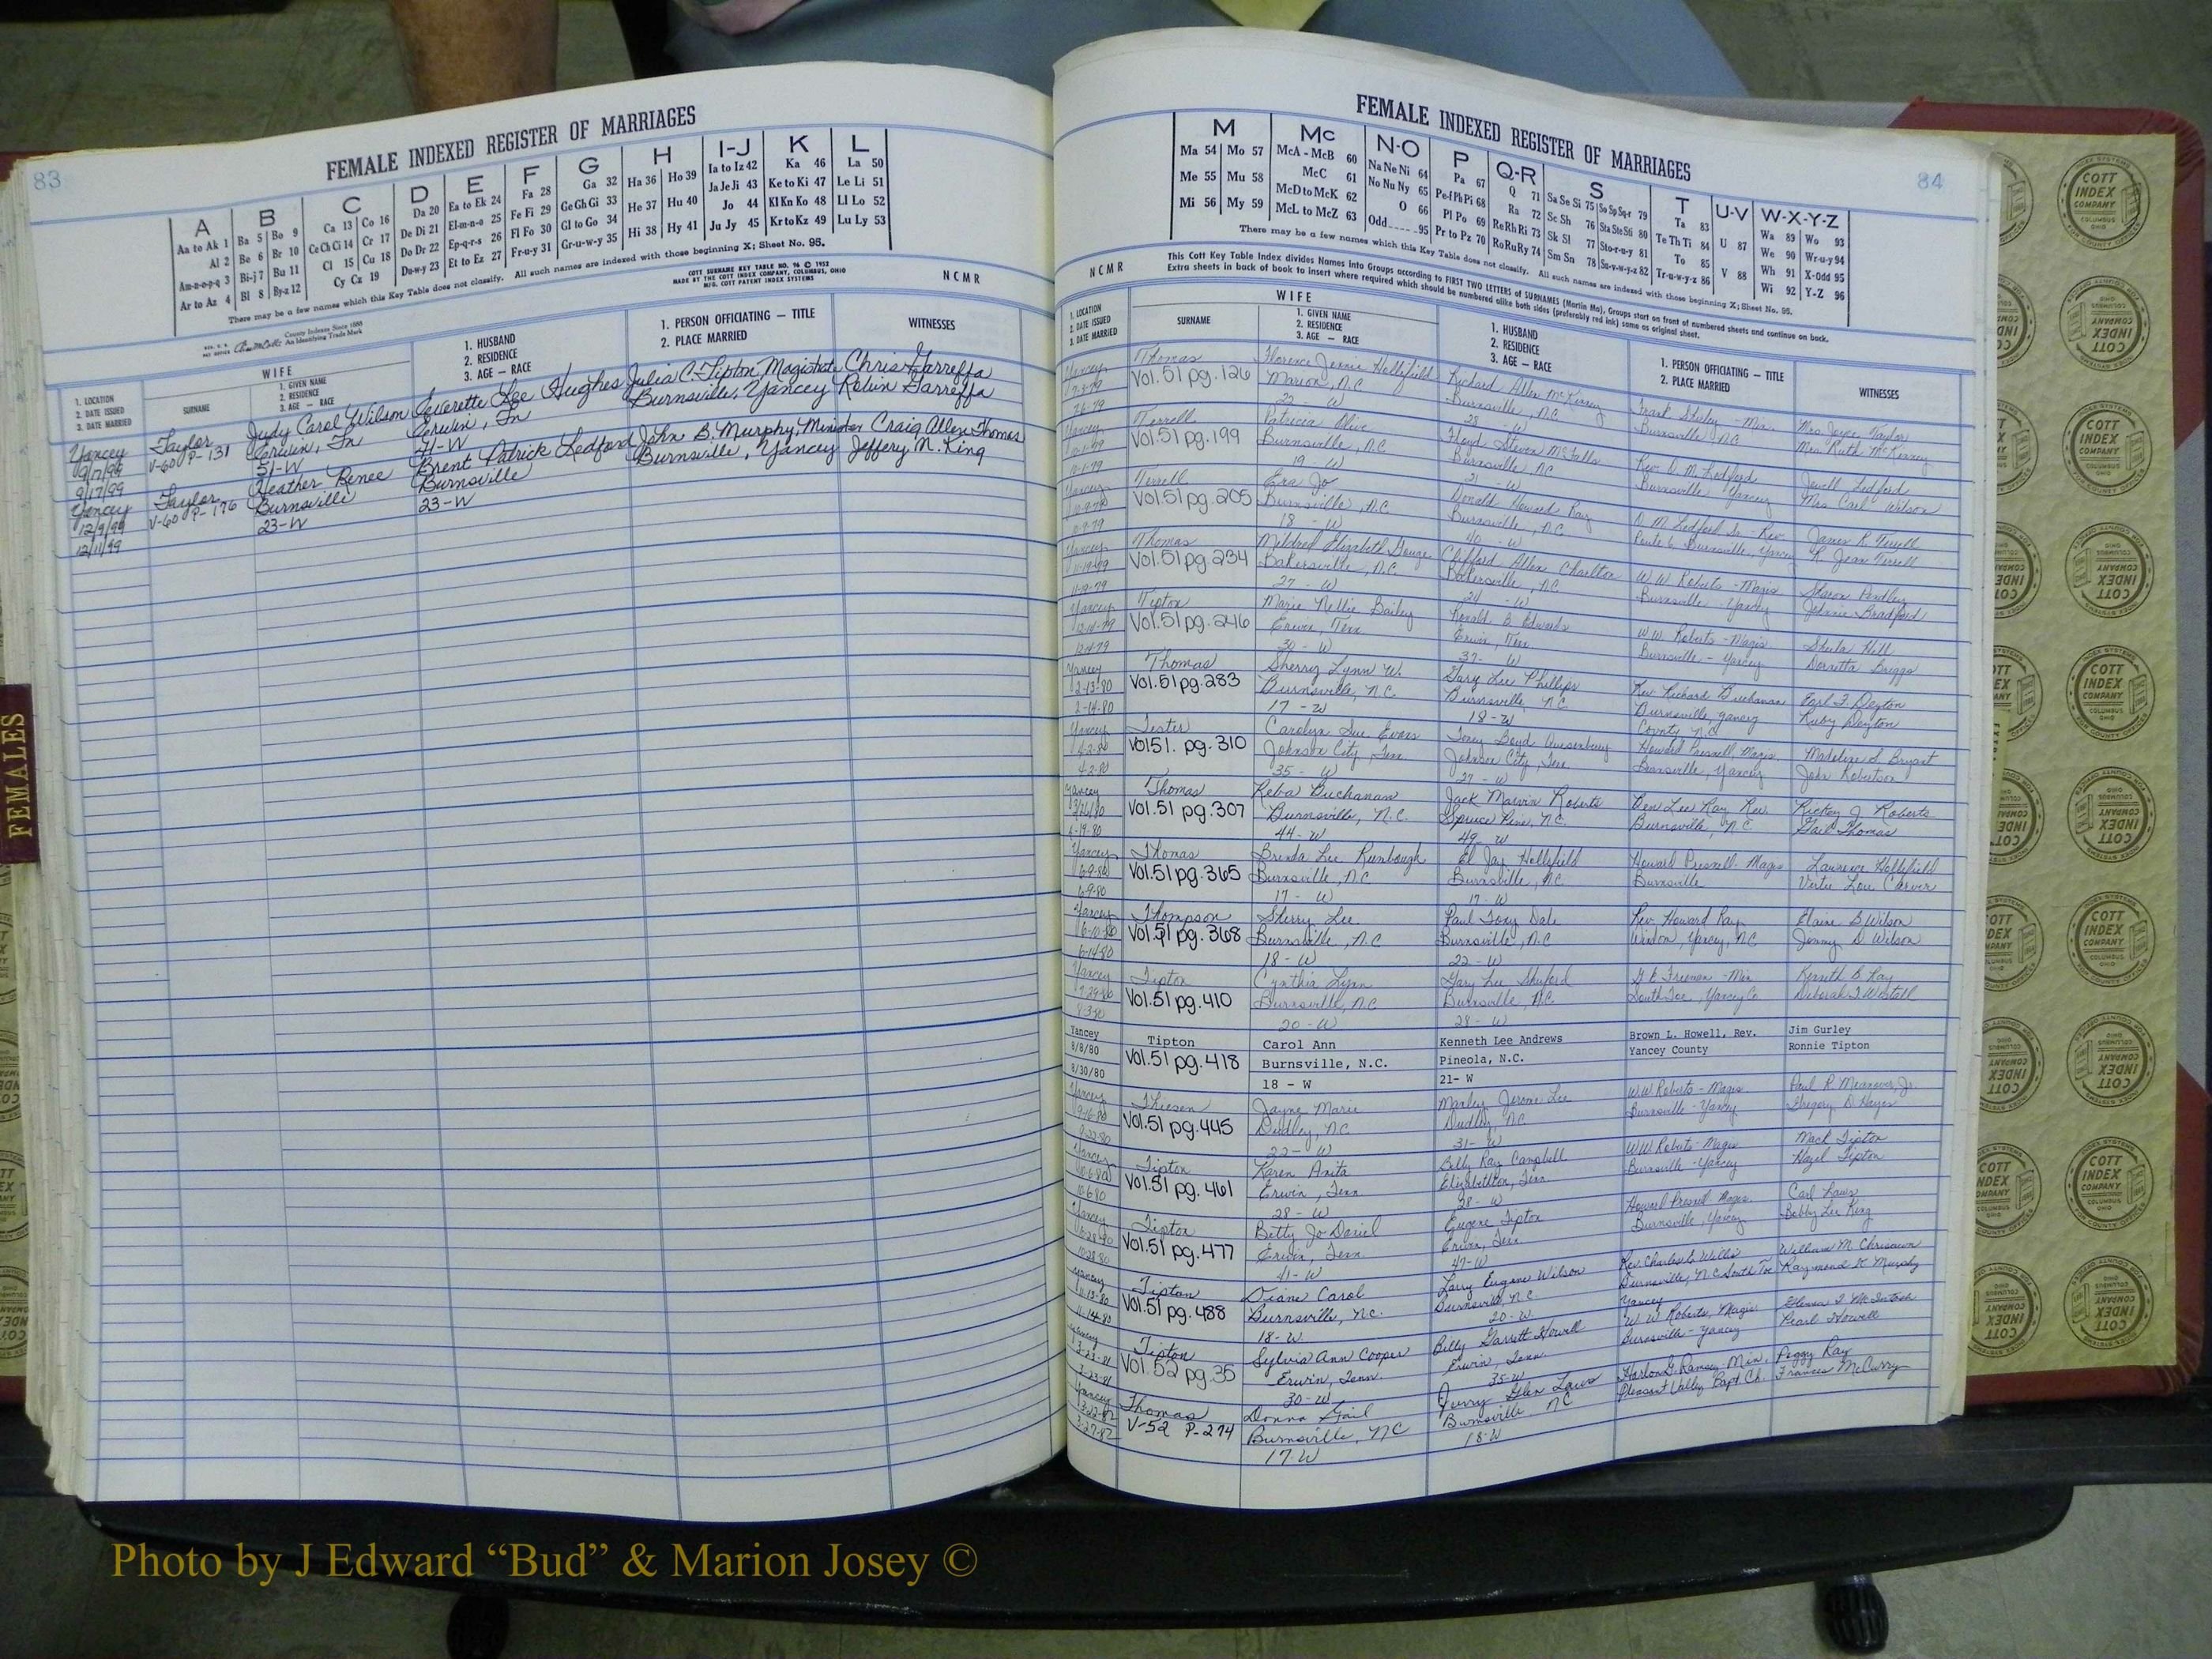 83
FEMALE INDEXED REGISTER OF MARRIAGES
A
Aa to Ak 1
Al 2
Am-n-o-p-q 3
Ar to Az 4
B
Ba 5 Bo 9
Be 6 Br 10
Bi-j 7 Bu 11
Bl 8 By-z 12
C
Ca 13 Co 16
Ce Ch Ci 14 Cr 17
Cl 15 Cu 18
Cy Cz 19
D
Da 20
De Di 21
Do Dr 22
Du-w-y 23
E
Ea to Ek 24
El-m-n-o 25
Ep-q-r-s 26
Et to Ez 27
F
Fa 28
Fe Fi 29
Fl Fo 30
Fr-u-y 31
G
Ga 32
Ge Gh Gi 33
Gl to Go 34
Gr-u-w-y 35
H
Ha 36 Ho 39
He 37 Hu 40
Hi 38 Hy 41
I-J
Ia to Iz 42
Ja Je Ji 43
Jo 44
Ju Jy 45
K
Ka 46
Ke to Ki 47
Kl Kn Ko 48
Kr to Kz 49
L
La 50
Le Li 51
Ll Lo 52
Lu Ly 53
There may be a few names which this Key Table does not classify. All such names are indexed with those beginning X; Sheet No. 95.
County Indexes Since 1888
An Identifying Trade Mark
COTT SURNAME KEY TABLE NO. 96 © 1952
MADE BY THE COTT INDEX COMPANY, COLUMBUS, OHIO
MFG. COTT PATENT INDEX SYSTEMS
NCMR
1. LOCATION
2. DATE ISSUED
3. DATE MARRIED
WIFE
SURNAME
1. GIVEN NAME
2. RESIDENCE
3. AGE — RACE
1. HUSBAND
2. RESIDENCE
3. AGE — RACE
1. PERSON OFFICIATING — TITLE
2. PLACE MARRIED
WITNESSES
Yancey Taylor Judy Carol Wilson Everette Lee Hughes Julia C. Tipton, Magistrate Chris Garreffa
9/17/99 V-60 P-131 Erwin, Tn Erwin, Tn Burnsville, Yancey Robin Garreffa
9/17/99 51-W 41-W
Yancey Taylor Heather Renee Brent Patrick Ledford John B. Murphy, Minister Craig Allen Thomas
12/9/99 V-60 P-176 Burnsville Burnsville Burnsville, Yancey Jeffery M. King
12/11/99 23-W 23-W
FEMALES
84
FEMALE INDEXED REGISTER OF MARRIAGES
M
Ma 54 Mo 57
Me 55 Mu 58
Mi 56 My 59
Mc
McA - McB 60
McC 61
McD to McK 62
McL to McZ 63
N-O
Na Ne Ni 64
No Nu Ny 65
O 66
Odd 95
P
Pa 67
Pe-f Ph Pi 68
Pl Po 69
Pr to Pz 70
Q-R
Q 71
Ra 72
Re Rh Ri 73
Ro Ru Ry 74
S
Sa Se Si 75 So Sp Sq-r 79
Sc Sh 76 Sta Ste Sti 80
Sk Sl 77 Sto-r-u-y 81
Sm Sn 78 Su-v-w-y-z 82
T
Ta 83
Te Th Ti 84
To 85
Tr-u-w-y-z 86
U-V
U 87
V 88
W-X-Y-Z
Wa 89 Wo 93
We 90 Wr-u-y 94
Wh 91 X-Odd 95
Wi 92 Y-Z 96
There may be a few names which this Key Table does not classify. All such names are indexed with those beginning X; Sheet No. 95.
NCMR
This Cott Key Table Index divides Names into Groups according to FIRST TWO LETTERS of SURNAMES (Martin Ma). Groups start on front of numbered sheets and continue on back.
Extra sheets in back of book to insert where required which should be numbered alike both sides (preferably red ink) same as original sheet.
1. LOCATION
2. DATE ISSUED
3. DATE MARRIED
WIFE
SURNAME
1. GIVEN NAME
2. RESIDENCE
3. AGE — RACE
1. HUSBAND
2. RESIDENCE
3. AGE — RACE
1. PERSON OFFICIATING — TITLE
2. PLACE MARRIED
WITNESSES
Yancey Thomas Florence Jennie Hollifield Richard Allen McKinney Frank Shirley - Min. Mrs. Joyce Taylor
Vol. 51 pg. 126 Marion, N.C. Burnsville, N.C. Burnsville N.C. Mrs. Ruth McKinney
22 - W 28 - W
Yancey Terrell Patricia Olive Floyd Steven McFalls Rev. O. M. Ledford Jewell Ledford
Vol. 51 pg. 199 Burnsville, N.C. Burnsville, N.C. Burnsville Yancey Mrs. Carl Wilson
19 - W 21 - W
Yancey Terrell Era Jo Donald Howard Ray O. M. Ledford Sr. - Rev. James R. Terrell
10-9-79 Vol. 51 pg. 205 Burnsville, N.C. Burnsville, N.C. Route 6, Burnsville, Yancey R. Jean Terrell
10-9-79 18 - W 40 - W
Yancey Thomas Mildred Elizabeth Gouge Clifford Allen Charlton W. W. Roberts - Magis Sharon Pendley
Vol. 51 pg. 234 Bakersville, N.C. Bakersville, N.C. Burnsville - Yancey Johnnie Bradford
11-19-79 27 - W 24 - W
Yancey Tipton Marie Nellie Bailey Ronald E. Edwards W. W. Roberts - Magis Shula Hill
12-14-79 Vol. 51 pg. 246 Erwin, Tenn Erwin, Tenn Burnsville - Yancey Dorretta Briggs
30 - W 37 - W
Yancey Thomas Sherry Lynn W. Gary Lee Phillips Rev. Richard Buchanan Earl F. Deyton
2-13-80 Vol. 51 pg. 283 Burnsville, N.C. Burnsville, N.C. Burnsville, Yancey Ruby Deyton
2-14-80 17 - W 18 - W County N.C.
Yancey Tester Carolyn Sue Evans Tony Boyd Quesenbury Howard Presnell Magis. Madeline S. Bryant
4-2-80 Vol 51. pg. 310 Johnson City, Tenn Johnson City, Tenn Burnsville, Yancey John Robertson
4-2-80 35 - W 27 - W
Yancey Thomas Reba Buchanan Jack Marvin Roberts Ben Lee Ray Rev. Rickey J. Roberts
3/26/80 Vol. 51 pg. 307 Burnsville, N.C. Spruce Pine, N.C. Burnsville, N.C. Gail Thomas
44 - W 49 - W
Yancey Thomas Brenda Lee Rumbough El Jay Hollifield Howard Presnell - Magis Lawrence Hollifield
6-9-80 Vol. 51 pg. 365 Burnsville, N.C. Burnsville, N.C. Burnsville Virtie Lou Carver
6-9-80 17 - W 17 - W
Yancey Thompson Sherry Lee Paul Tony Dale Rev. Howard Ray Elaine B. Wilson
6-10-80 Vol. 51 pg. 368 Burnsville, N.C. Burnsville, N.C. Windom, Yancey, N.C. Jimmy D. Wilson
6-14-80 18 - W 22 - W
Yancey Tipton Cynthia Lynn Gary Lee Shuford G. E. Freeman - Min Kenneth B. Ray
7-29-80 Vol. 51 pg. 410 Burnsville, N.C. Burnsville, N.C. South Toe, Yancey Co Deborah T. Westall
8-3-80 20 - W 28 - W
Yancey Tipton Carol Ann Kenneth Lee Andrews Brown L. Howell, Rev. Jim Gurley
8/8/80 Vol. 51 pg. 418 Burnsville, N.C. Pineola, N.C. Yancey County Ronnie Tipton
8/30/80 18 - W 21- W
Yancey Thiesen Jayne Marie Manley Jerome Lee W.W. Roberts - Magis Paul R. Jr.
9-16-80 Vol. 51 pg. 445 Dudley, N.C. Dudley, N.C. Burnsville - Yancey Gregory D. Hayes
9-22-80 22 - W 31 - W
Yancey Tipton Karen Anita Billy Ray Campbell W.W. Roberts - Magis Mack Tipton
10-6-80 Vol. 51 pg. 461 Erwin, Tenn Elizabethton, Tenn Burnsville - Yancey Hazel Tipton
10-6-80 28 - W 38 - W
Yancey Tipton Betty Jo Daniel Eugene Tipton Howard Presnell Magis. Carl Laws
10-28-80 Vol. 51 pg. 477 Erwin, Tenn Erwin, Tenn Burnsville, Yancey Bobby Lee King
10-28-80 41 - W 47 - W
Yancey Tipton Diane Carol Larry Eugene Wilson Rev. Charles Willis William M. Chrisawn
11-13-80 Vol. 51 pg. 488 Burnsville, N.C. Burnsville, N.C. Burnsville, N.C. South Toe Raymond K. Murphy
11-14-80 18 - W 20 - W Yancey
Yancey Tipton Sylvia Ann Cooper Billy Garrett Howell W. W. Roberts, Magis Glenna I. McIntosh
3-23-81 Vol. 52 pg. 35 Erwin, Tenn. Erwin, Tenn. Burnsville - Yancey Pearl Howell
3-23-81 30 - W 35 - W
Yancey Thomas Donna Gail Jerry Glen Laws Harlon G. Ramsey - Min. Peggy Ray
V-52 P-274 Burnsville, NC Burnsville NC Pleasant Valley Bapt. Ch. Frances McCurry
3-27-82 17-W 18-W
COTT
INDEX
COMPANY
COLUMBUS
OHIO
Photo by J Edward “Bud” & Marion Josey ©